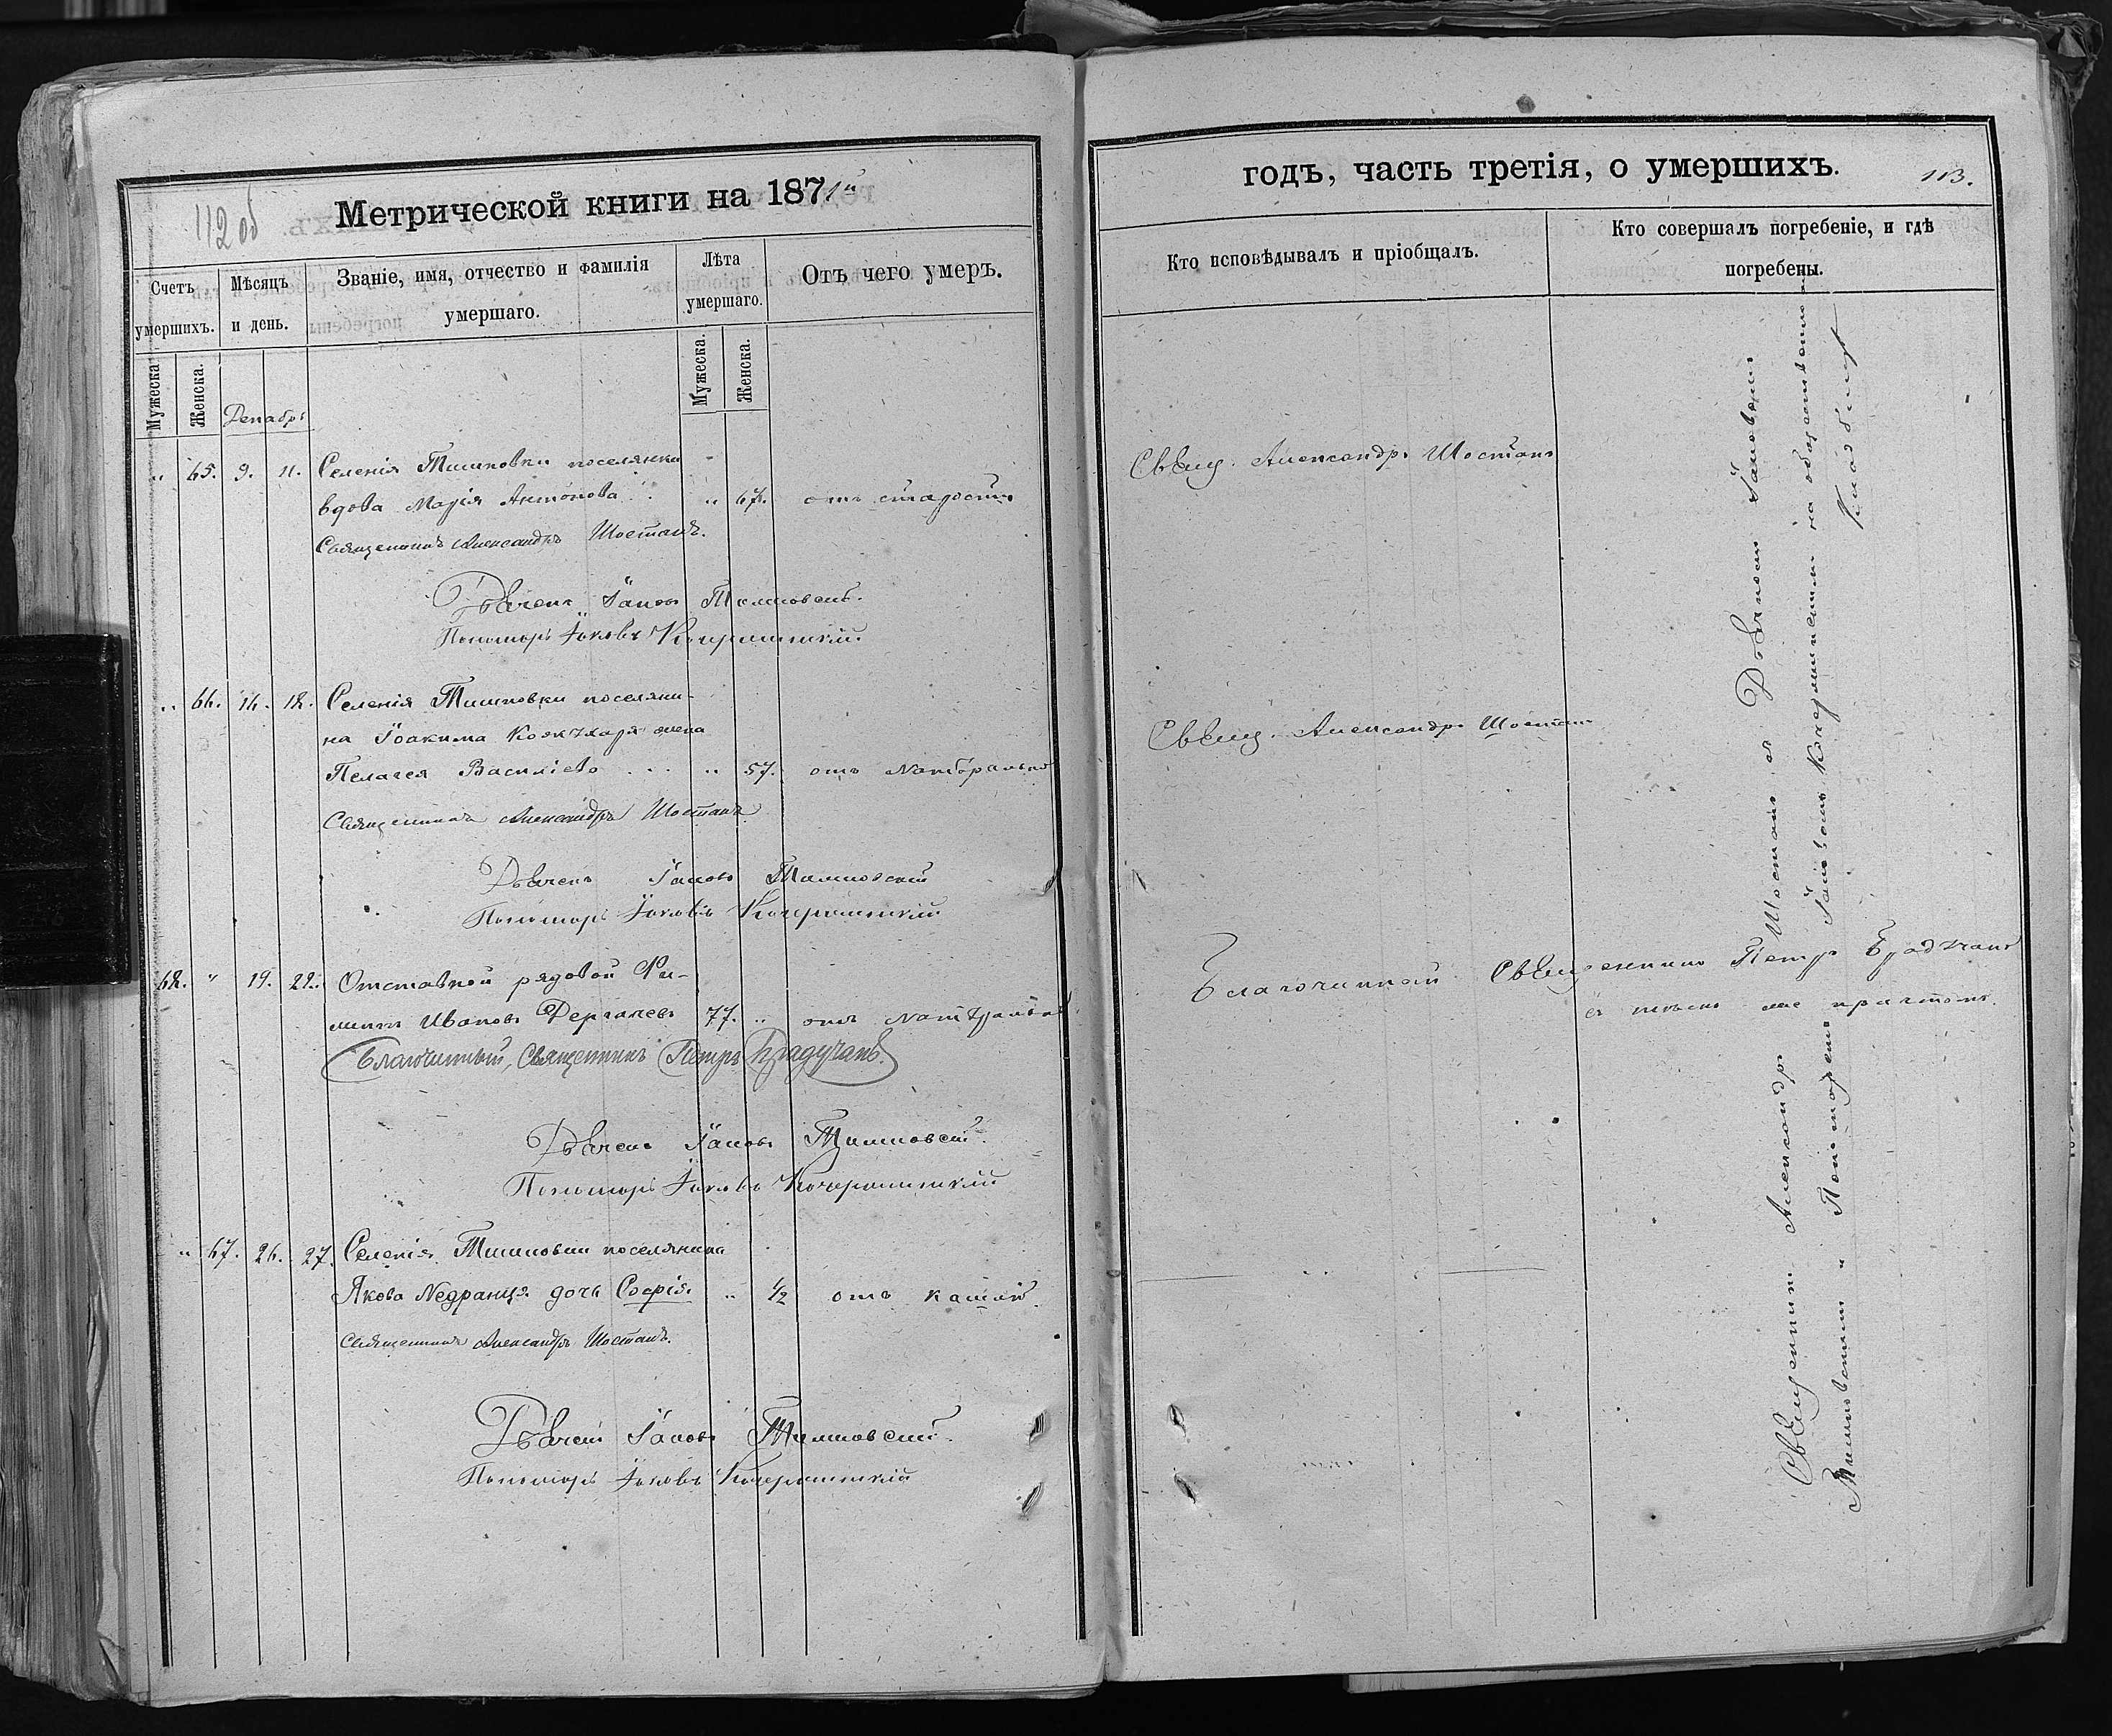 112 об
Метрической книги на 1871й
Счетъ умершихъ.
Мѣсяцъ и день.
Званіе, имя, отчество и фамилія умершаго.
Лѣта умершаго.
Отъ чего умеръ.
Мужеска.
Женска.
Мужеска.
Женска.
Декабрь
" 65. 9. 11. Селенія Тишковки поселянка
вдова Марія Антонова " 67. отъ старости
Священникъ Александръ Шостакъ.
Дьячекъ Іаковъ Тишковскій.
Пономарь Іаковъ
" 66. 16. 18. Селенія Тишковки поселяни-
на Іоакима жена
Пелагея Василіева " 57. отъ натуральной
Священникъ Александръ Шостакъ
Дьячекъ Іаковъ Тишковскій
Пономарь Іаковъ
68. " 19. 22. Отставной рядовой Фи-
липъ Ивановъ Дергачевъ 77. " отъ натуральной
Благочинный, Священникъ Петръ Брадучанъ.
Дьячекъ Іаковъ Тишковскій.
Пономарь Іаковъ
" 67. 26. 27. Селенія Тишковки поселянина
Якова Недранця дочь Софія " 1/2 отъ кашлю
Священникъ Александръ Шостакъ.
Дьячекъ Іаковъ Тишковскій.
Пономарь Іаковъ
годъ, часть третія, о умершихъ.
113.
Кто исповѣдывалъ и пріобщалъ.
Кто совершалъ погребеніе, и гдѣ погребены.
Свящ. Александръ Шостакъ
Свящ. Александръ Шостакъ
Благочинный Священникъ Петръ Брадучанъ
съ причтомъ.
Священникъ Александръ Шостакъ съ Дьячкомъ Іаковомъ
Тишковскимъ и Пономаремъ Іаковомъ на общественномъ
Кладбищѣ